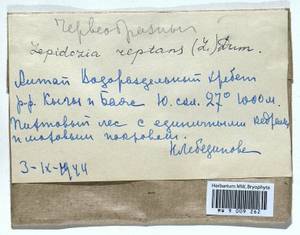 Червеобразный
Lepidozia reptans (L.) Dum.
Алтай Водораздельный хребет
р.р. Кыги и Баяс Ю. скл. 27° 1000 м.
Пихтовый лес с единичными кедрами
и моховым покровом.
Н Лебединова
3-IX-1944
Herbarium MW, Bryophyta
MW 9 009 262